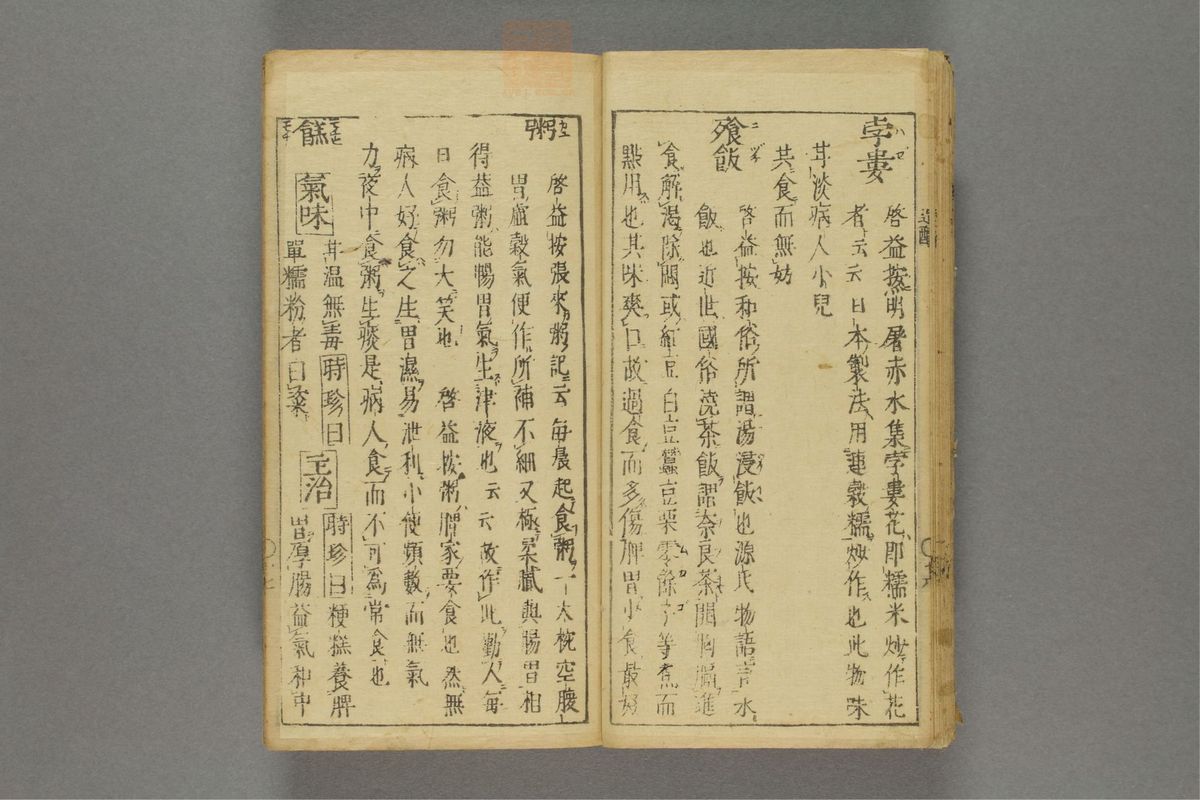 孛婁
啓益按明屠赤水集孛婁花即糯米炒作花
者云云日本製法用連穀糯炒作也此物味
甘淡病人小兒
共食而無妨
飧飯
啓益按和俗所謂湯浸飯也源氏物語言水
飯也近世國俗澆茶飯謂奈良茶開胸膈進
食解渴除悶或紅豆白豆蠶豆栗零餘子等煮而
點用也其味爽口故過食而多傷脾胃少食最好
粥
啓益按張來粥記云每晨起食粥一大椀空腹
胃虛穀氣便作所補不細又極柔膩與腸胃相
得益粥能腸胃氣生津液也云云故作此勸人每
日食粥勿大笑也 啓益按粥家要食也然無
病人好食之生胃濕易泄利小便頻數而無氣
力夜中食粥生痰是病人食而不可為常食也
餻
氣味 甘温無毒 時珍曰 主治 時珍曰粳糕養脾
單糯粉者曰粢 胃厚腸益氣和中